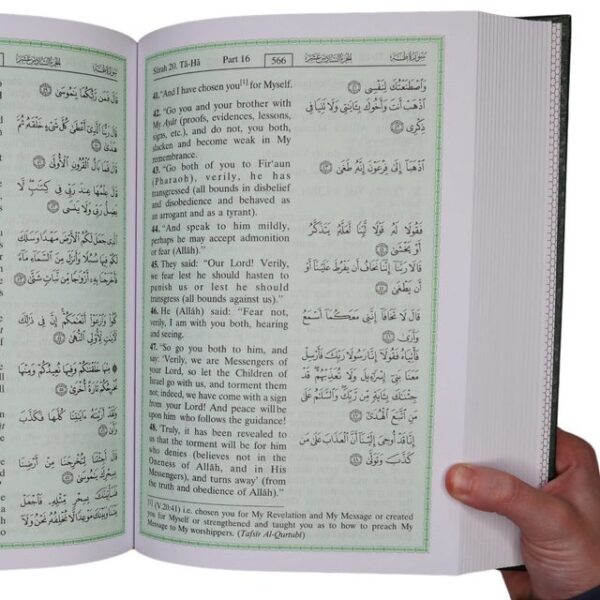 سورة طه
الجزء السادس عشر
قَالَ فَمَن رَّبُّكُمَا يَـٰمُوسَىٰ ﴿٤٩﴾
قَالَ رَبُّنَا ٱلَّذِىٓ أَعْطَىٰ كُلَّ شَىْءٍ خَلْقَهُۥ ثُمَّ
هَدَىٰ ﴿٥٠﴾
قَالَ فَمَا بَالُ ٱلْقُرُونِ ٱلْأُولَىٰ ﴿٥١﴾
قَالَ عِلْمُهَا عِندَ رَبِّى فِى كِتَـٰبٍ ۖ لَّا
يَضِلُّ رَبِّى وَلَا يَنسَى ﴿٥٢﴾
ٱلَّذِى جَعَلَ لَكُمُ ٱلْأَرْضَ مَهْدًا وَسَلَكَ
لَكُمْ فِيهَا سُبُلًا وَأَنزَلَ مِنَ ٱلسَّمَآءِ مَآءً
فَأَخْرَجْنَا بِهِۦٓ أَزْوَٰجًا مِّن نَّبَاتٍ شَتَّىٰ ﴿٥٣﴾
كُلُوا۟ وَٱرْعَوْا۟ أَنْعَـٰمَكُمْ ۗ إِنَّ فِى ذَٰلِكَ
لَـَٔايَـٰتٍ لِّأُو۟لِى ٱلنُّهَىٰ ﴿٥٤﴾
۞ مِنْهَا خَلَقْنَـٰكُمْ وَفِيهَا نُعِيدُكُمْ وَمِنْهَا
نُخْرِجُكُمْ تَارَةً أُخْرَىٰ ﴿٥٥﴾
وَلَقَدْ أَرَيْنَـٰهُ ءَايَـٰتِنَا كُلَّهَا فَكَذَّبَ
وَأَبَىٰ ﴿٥٦﴾
قَالَ أَجِئْتَنَا لِتُخْرِجَنَا مِنْ أَرْضِنَا
بِسِحْرِكَ يَـٰمُوسَىٰ ﴿٥٧﴾
فَلَنَأْتِيَنَّكَ بِسِحْرٍ مِّثْلِهِۦ فَٱجْعَلْ
بَيْنَنَا وَبَيْنَكَ مَوْعِدًا لَّا نُخْلِفُهُۥ نَحْنُ وَلَآ
Sûrah 20. Tâ-Hâ
Part 16
566
الجزء السادس عشر
سورة طه
41. "And I have chosen you[1] for Myself.
42. "Go you and your brother with
My Ayât (proofs, evidences, lessons,
signs, etc.), and do not, you both,
slacken and become weak in My
remembrance.
43. "Go both of you to Fir'aun
(Pharaoh), verily, he has
transgressed (all bounds in disbelief
and disobedience and behaved as
an arrogant and as a tyrant).
44. "And speak to him mildly,
perhaps he may accept admonition
or fear (Allâh)."
45. They said: "Our Lord! Verily,
we fear lest he should hasten to
punish us or lest he should
transgress (all bounds against us)."
46. He (Allâh) said: "Fear not,
verily, I am with you both, hearing
and seeing.
47. "So go you both to him, and
say: 'Verily, we are Messengers of
your Lord, so let the Children of
Israel go with us, and torment them
not; indeed, we have come with a sign
from your Lord! And peace will be
upon him who follows the guidance!
48. 'Truly, it has been revealed to
us that the torment will be for him
who denies (believes not in the
Oneness of Allâh, and in His
Messengers), and turns away' (from
the truth and obedience of Allâh)."
وَٱصْطَنَعْتُكَ لِنَفْسِى ﴿٤١﴾
ٱذْهَبْ أَنتَ وَأَخُوكَ بِـَٔايَـٰتِى وَلَا تَنِيَا فِى
ذِكْرِى ﴿٤٢﴾
ٱذْهَبَآ إِلَىٰ فِرْعَوْنَ إِنَّهُۥ طَغَىٰ ﴿٤٣﴾
فَقُولَا لَهُۥ قَوْلًا لَّيِّنًا لَّعَلَّهُۥ يَتَذَكَّرُ
أَوْ يَخْشَىٰ ﴿٤٤﴾
قَالَا رَبَّنَآ إِنَّنَا نَخَافُ أَن يَفْرُطَ عَلَيْنَآ أَوْ
أَن يَطْغَىٰ ﴿٤٥﴾
قَالَ لَا تَخَافَآ ۖ إِنَّنِى مَعَكُمَآ أَسْمَعُ
وَأَرَىٰ ﴿٤٦﴾
فَأْتِيَاهُ فَقُولَآ إِنَّا رَسُولَا رَبِّكَ فَأَرْسِلْ
مَعَنَا بَنِىٓ إِسْرَٰٓءِيلَ وَلَا تُعَذِّبْهُمْ ۖ قَدْ
جِئْنَـٰكَ بِـَٔايَةٍ مِّن رَّبِّكَ ۖ وَٱلسَّلَـٰمُ عَلَىٰ
مَنِ ٱتَّبَعَ ٱلْهُدَىٰٓ ﴿٤٧﴾
إِنَّا قَدْ أُوحِىَ إِلَيْنَآ أَنَّ ٱلْعَذَابَ عَلَىٰ مَن
كَذَّبَ وَتَوَلَّىٰ ﴿٤٨﴾
[1] (V.20:41) i.e. chosen you for My Revelation and My Message or created
you for Myself or strengthened and taught you as to how to preach My
Message to My worshippers. (Tafsir Al-Qurtubî)